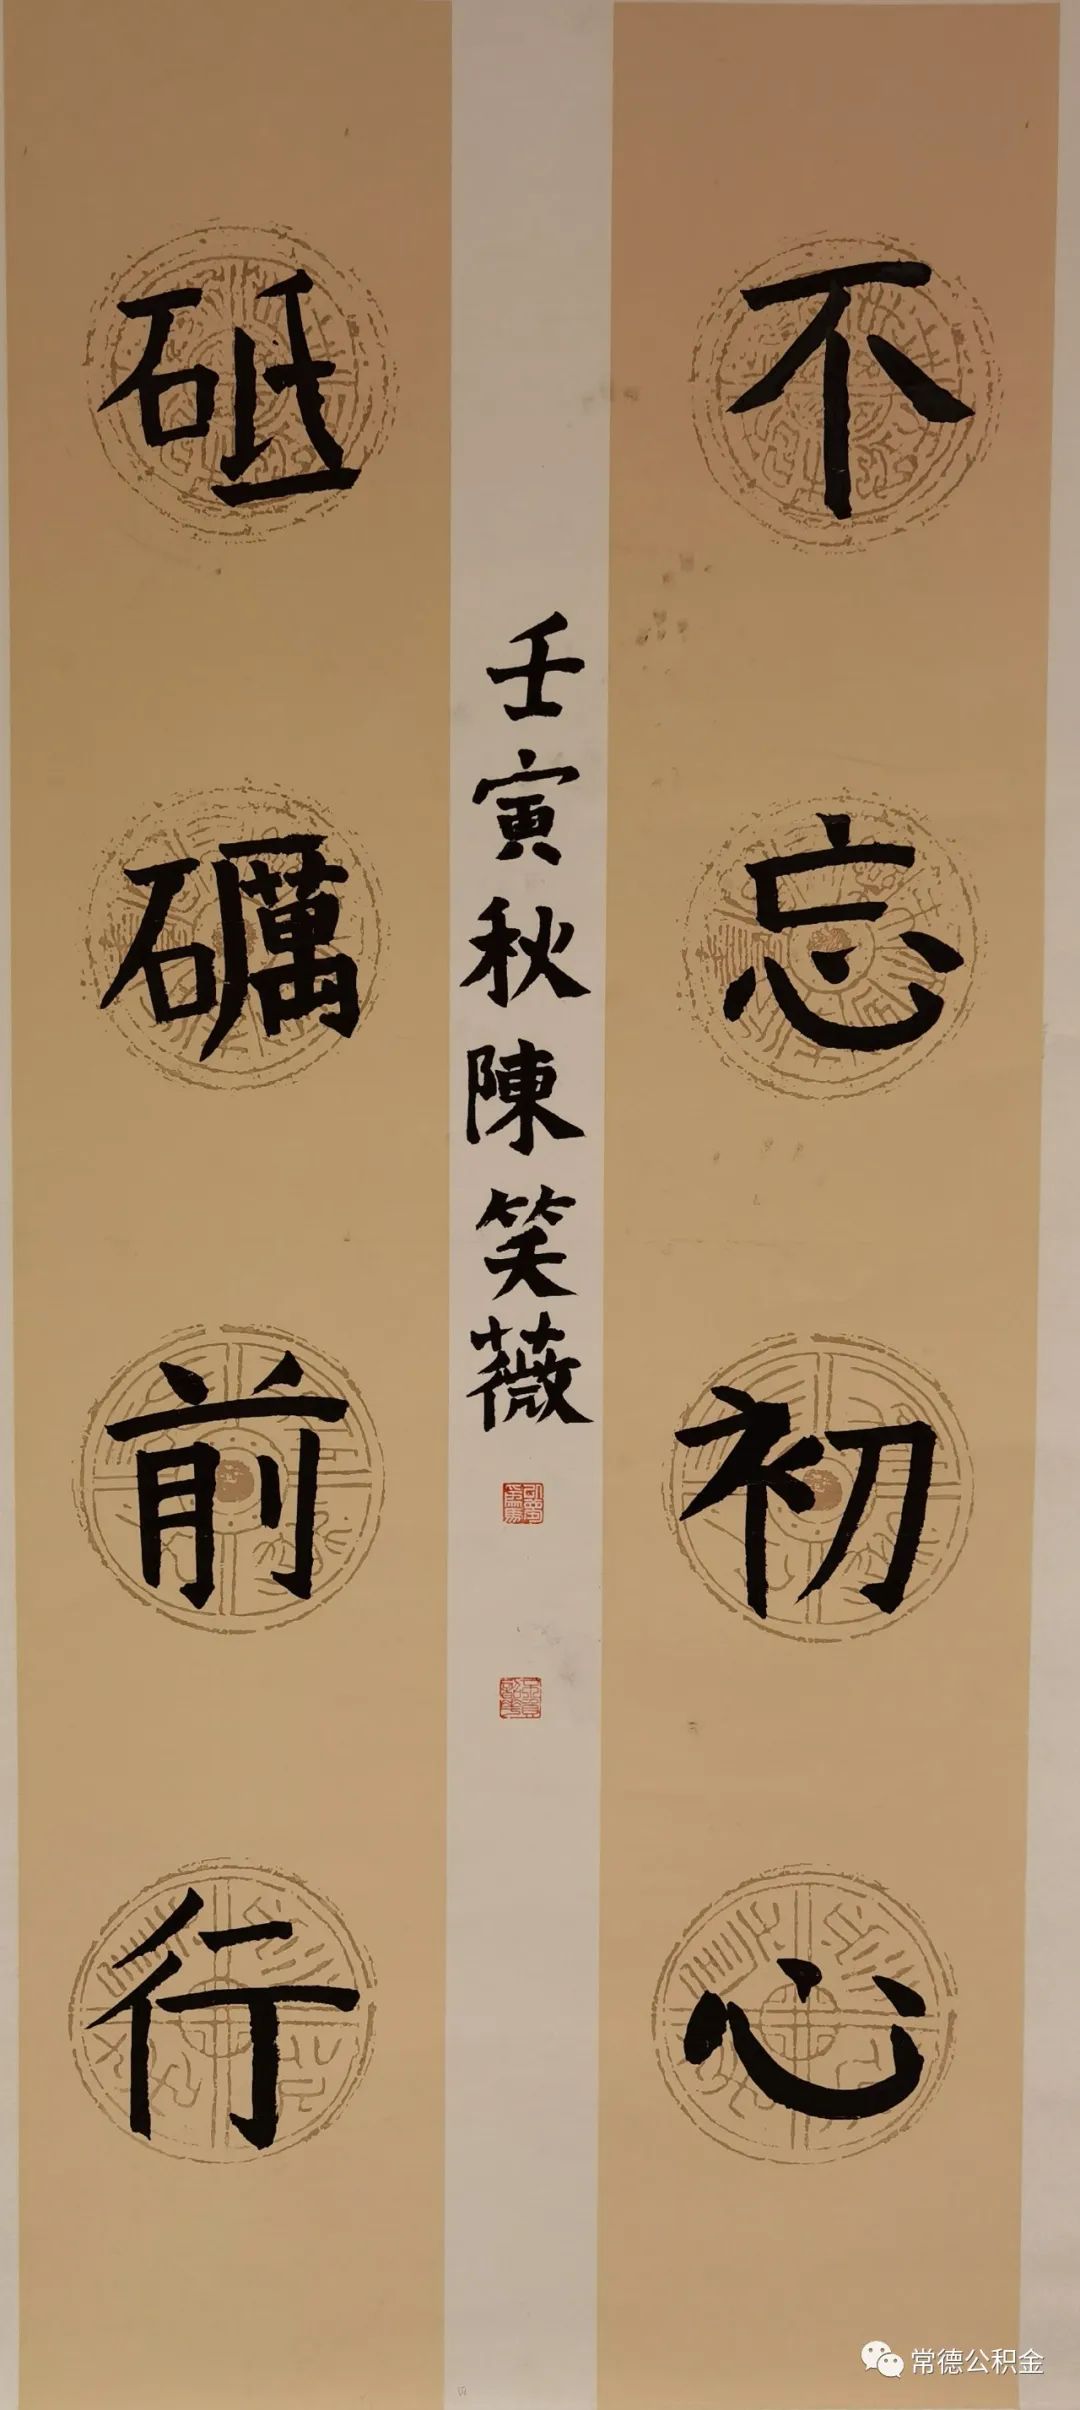 不忘初心
砥礪前行
壬寅秋陳笑薇
常德公积金